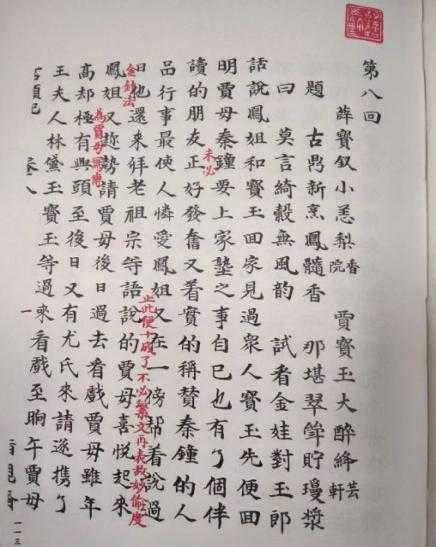 第八回
薛寶釵小恙梨香院 賈寶玉大醉絳芸軒
題 古鼎新烹鳳髓香 那堪翠斝貯瓊漿
曰 莫言綺縠無風韻 試看金娃對玉郎
話說鳳姐和寶玉回家見過眾人寶玉先便回
明賈母秦鐘要上家塾之事自己也有了個伴
讀的朋友正好發奮又着實的稱贊秦鐘的人
未必
品行事最使人憐愛鳳姐又在一傍幫着說過
日他還來拜老祖宗等語說的賈母喜悅起來
止此便十成了不必繁文再表故妙偷度
金針法
鳳姐又趁勢請賈母後日過去看戲賈母雖年
為賈母寫傳
高却極有興頭至後日又有尤氏來請遂携了
王夫人林黛玉寶玉等過來看戲至晌午賈母
一一三